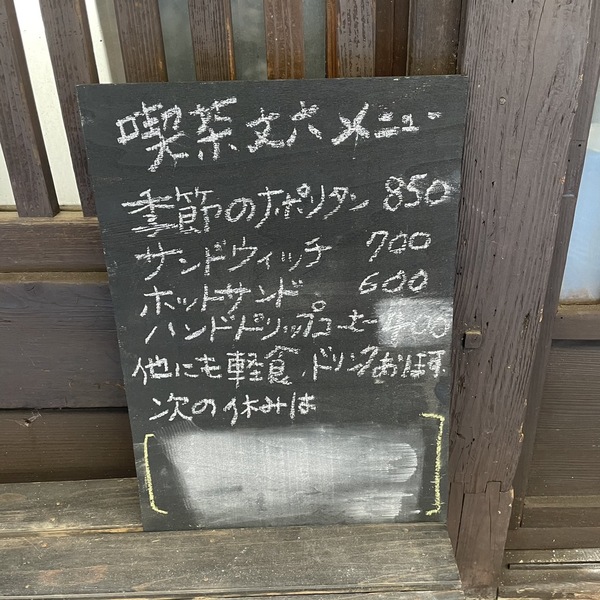 喫茶文六メニュー
季節のナポリタン 850
サンドウィッチ 700
ホットサンド 600
ハンドドリップコーヒー 400
他にも軽食、ドリンクあります。
次の休みは